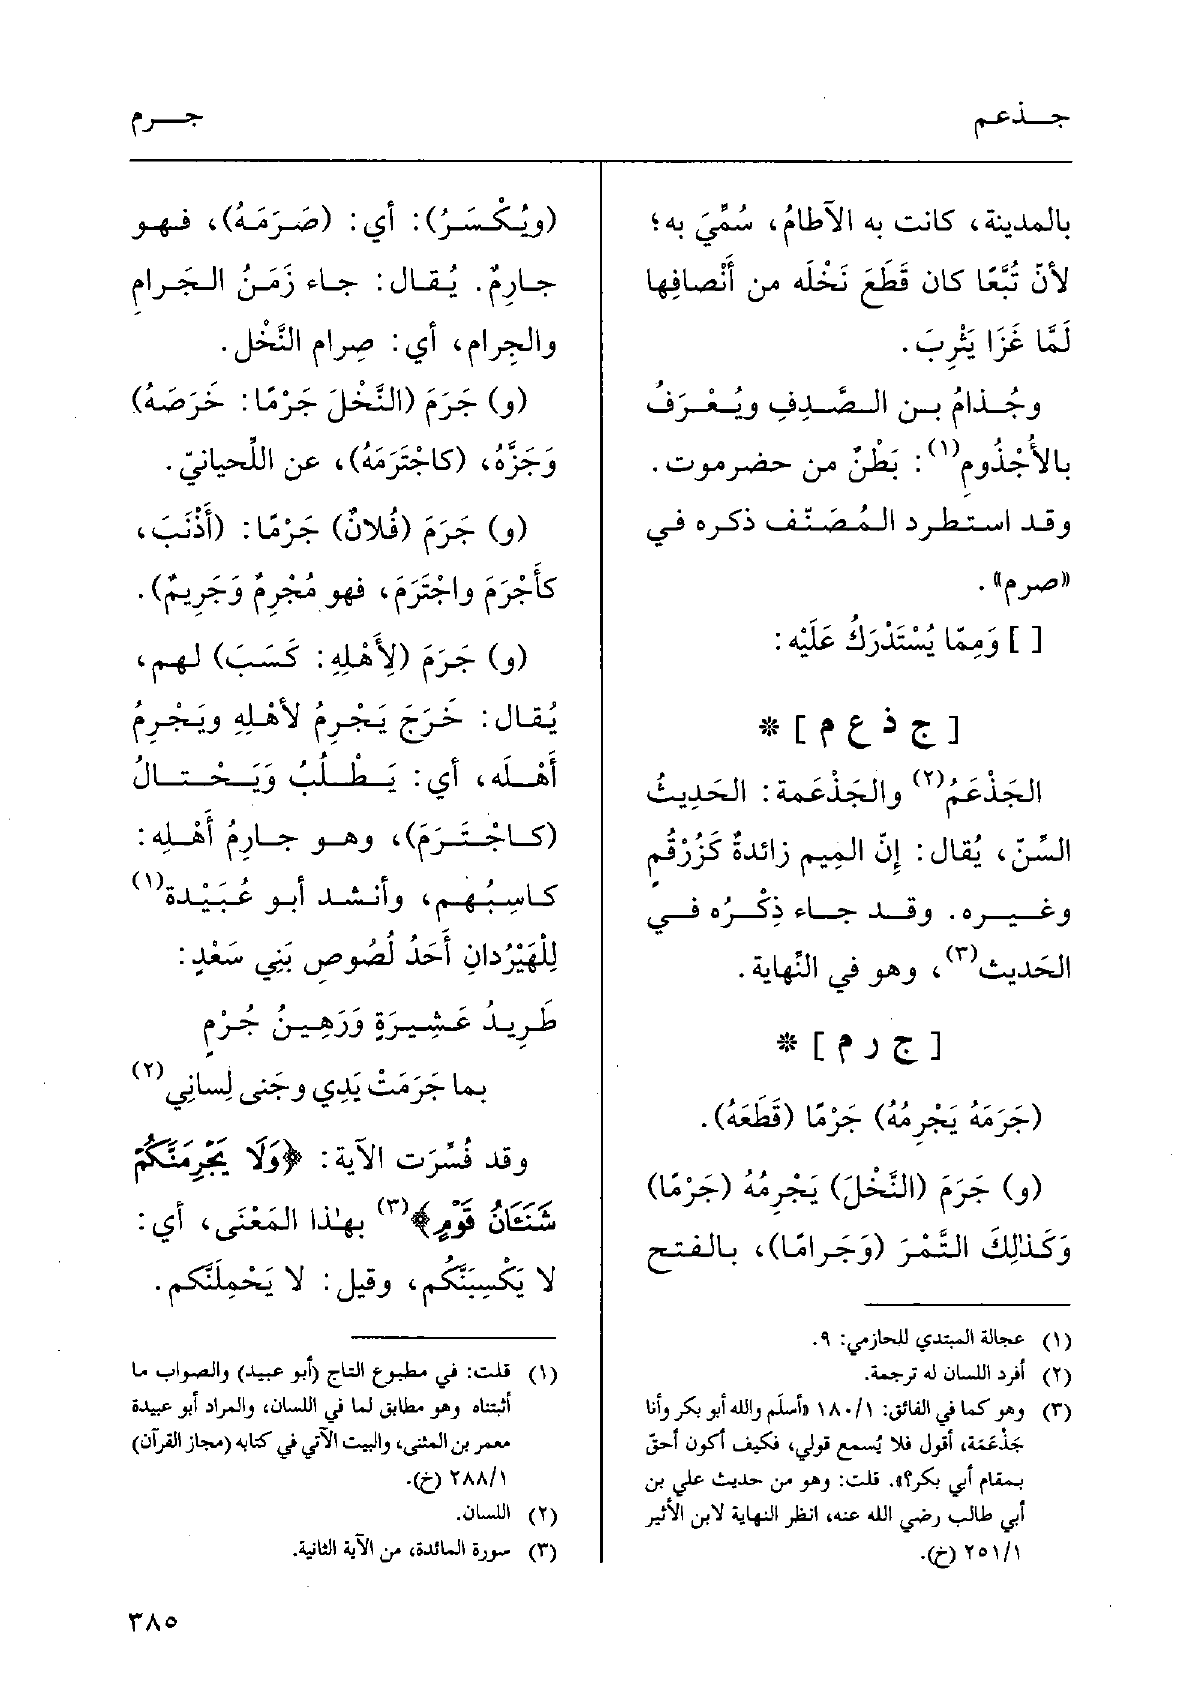 جـذعـم
جـــرم
بالمدينة، كانت به الآطامُ، سُمِّيَ به؛
لأنّ تُبَّعًا كان قَطَعَ نَخْلَه من أَنْصافِها
لَمَّا غَزَا يَثْرِبَ.
وجُـذامُ بـن الـصَّـدِفِ ويُـعْـرَفُ
بالأُجْذُومِ(١): بَطْنٌ من حضرموت.
وقـد استطرد المُصَنّف ذكره في
«صرم».
[ ] وَمِمّا يُسْتَدْرَكُ عَلَيْه:
[ ج ذ ع م ] *
الجَذْعَمُ(٢) والجَذْعَمة: الحَدِيثُ
السِّنّ، يُقال: إِنّ الميم زائدةٌ كَزُرْقُمٍ
وغـيـره. وقـد جـاء ذِكْـرُه فـي
الحَديث(٣)، وهو في النِّهاية.
[ ج ر م ] *
(جَرَمَهُ يَجْرِمُهُ) جَرْمًا (قَطَعَهُ).
(و) جَرَمَ (النَّخْلَ) يَجْرِمُهُ (جَرْمًا)
وَكَذلِكَ التَّمْرَ (وَجَرامًا)، بالفتح
(١) عجالة المبتدي للحازمي: ٩.
(٢) أفرد اللسان له ترجمة.
(٣) وهو كما في الفائق: ١/ ١٨٠ «أسلَم والله أبو بكر وأنا
جَذْعَمَة، أقول فلا يُسمع قولي، فكيف أكون أحقّ
بمقام أبي بكر؟». قلت: وهو من حديث علي بن
أبي طالب رضي الله عنه، انظر النهاية لابن الأثير
١/ ٢٥١ (خ).
(ويُـكْـسَـرُ): أي: (صَـرَمَـهُ)، فـهـو
جـارِمٌ. يُـقـال: جـاء زَمَـنُ الـجَـرامِ
والجِرام، أي: صِرام النَّخْل.
(و) جَرَمَ (النَّخْلَ جَرْمًا: خَرَصَهُ)
وَجَزَّهُ، (كاجْتَرَمَهُ)، عن اللّحيانيّ.
(و) جَرَمَ (فُلانٌ) جَرْمًا: (أَذْنَبَ،
كأَجْرَمَ واجْتَرَمَ، فهو مُجْرِمٌ وَجَرِيمٌ).
(و) جَرَمَ (لِأَهْلِهِ: كَسَبَ) لهم،
يُقـال: خَرَجَ يَـجْرِمُ لأهْلِهِ ويَـجْرِمُ
أَهْـلَه، أي: يَـطْـلُبُ وَيَـحْـتـالُ
(كـاجْـتَـرَمَ)، وهـو جـارِمُ أَهْـلِه:
كاسِبُهـم، وأنـشـد أبـو عُـبَـيْـدة(١)
لِلْهَيْرُدانِ أَحَدُ لُصُوصِ بَنِي سَعْدٍ:
طَرِيـدُ عَـشِيـرَةٍ وَرَهِيـنُ جُـرْمٍ
بما جَرَمَتْ يَدِي وجَنى لِسانِي(٢)
وقد فُسِّرَت الآية: ﴿وَلَا يَجْرِمَنَّكُمْ
شَنَـَٔانُ قَوْمٍ﴾(٣) بهٰذا المَعْنَى، أي:
لا يَكْسِبَنَّكُم، وقيل: لا يَحْمِلَنَّكم.
(١) قلت: في مطبوع التاج (أبو عبيد) والصواب ما
أثبتناه وهو مطابق لما في اللسان، والمراد أبو عبيدة
معمر بن المثنى، والبيت الآتي في كتابه (مجاز القرآن)
١/ ٢٨٨ (خ).
(٢) اللسان.
(٣) سورة المائدة، من الآية الثانية.
٣٨٥